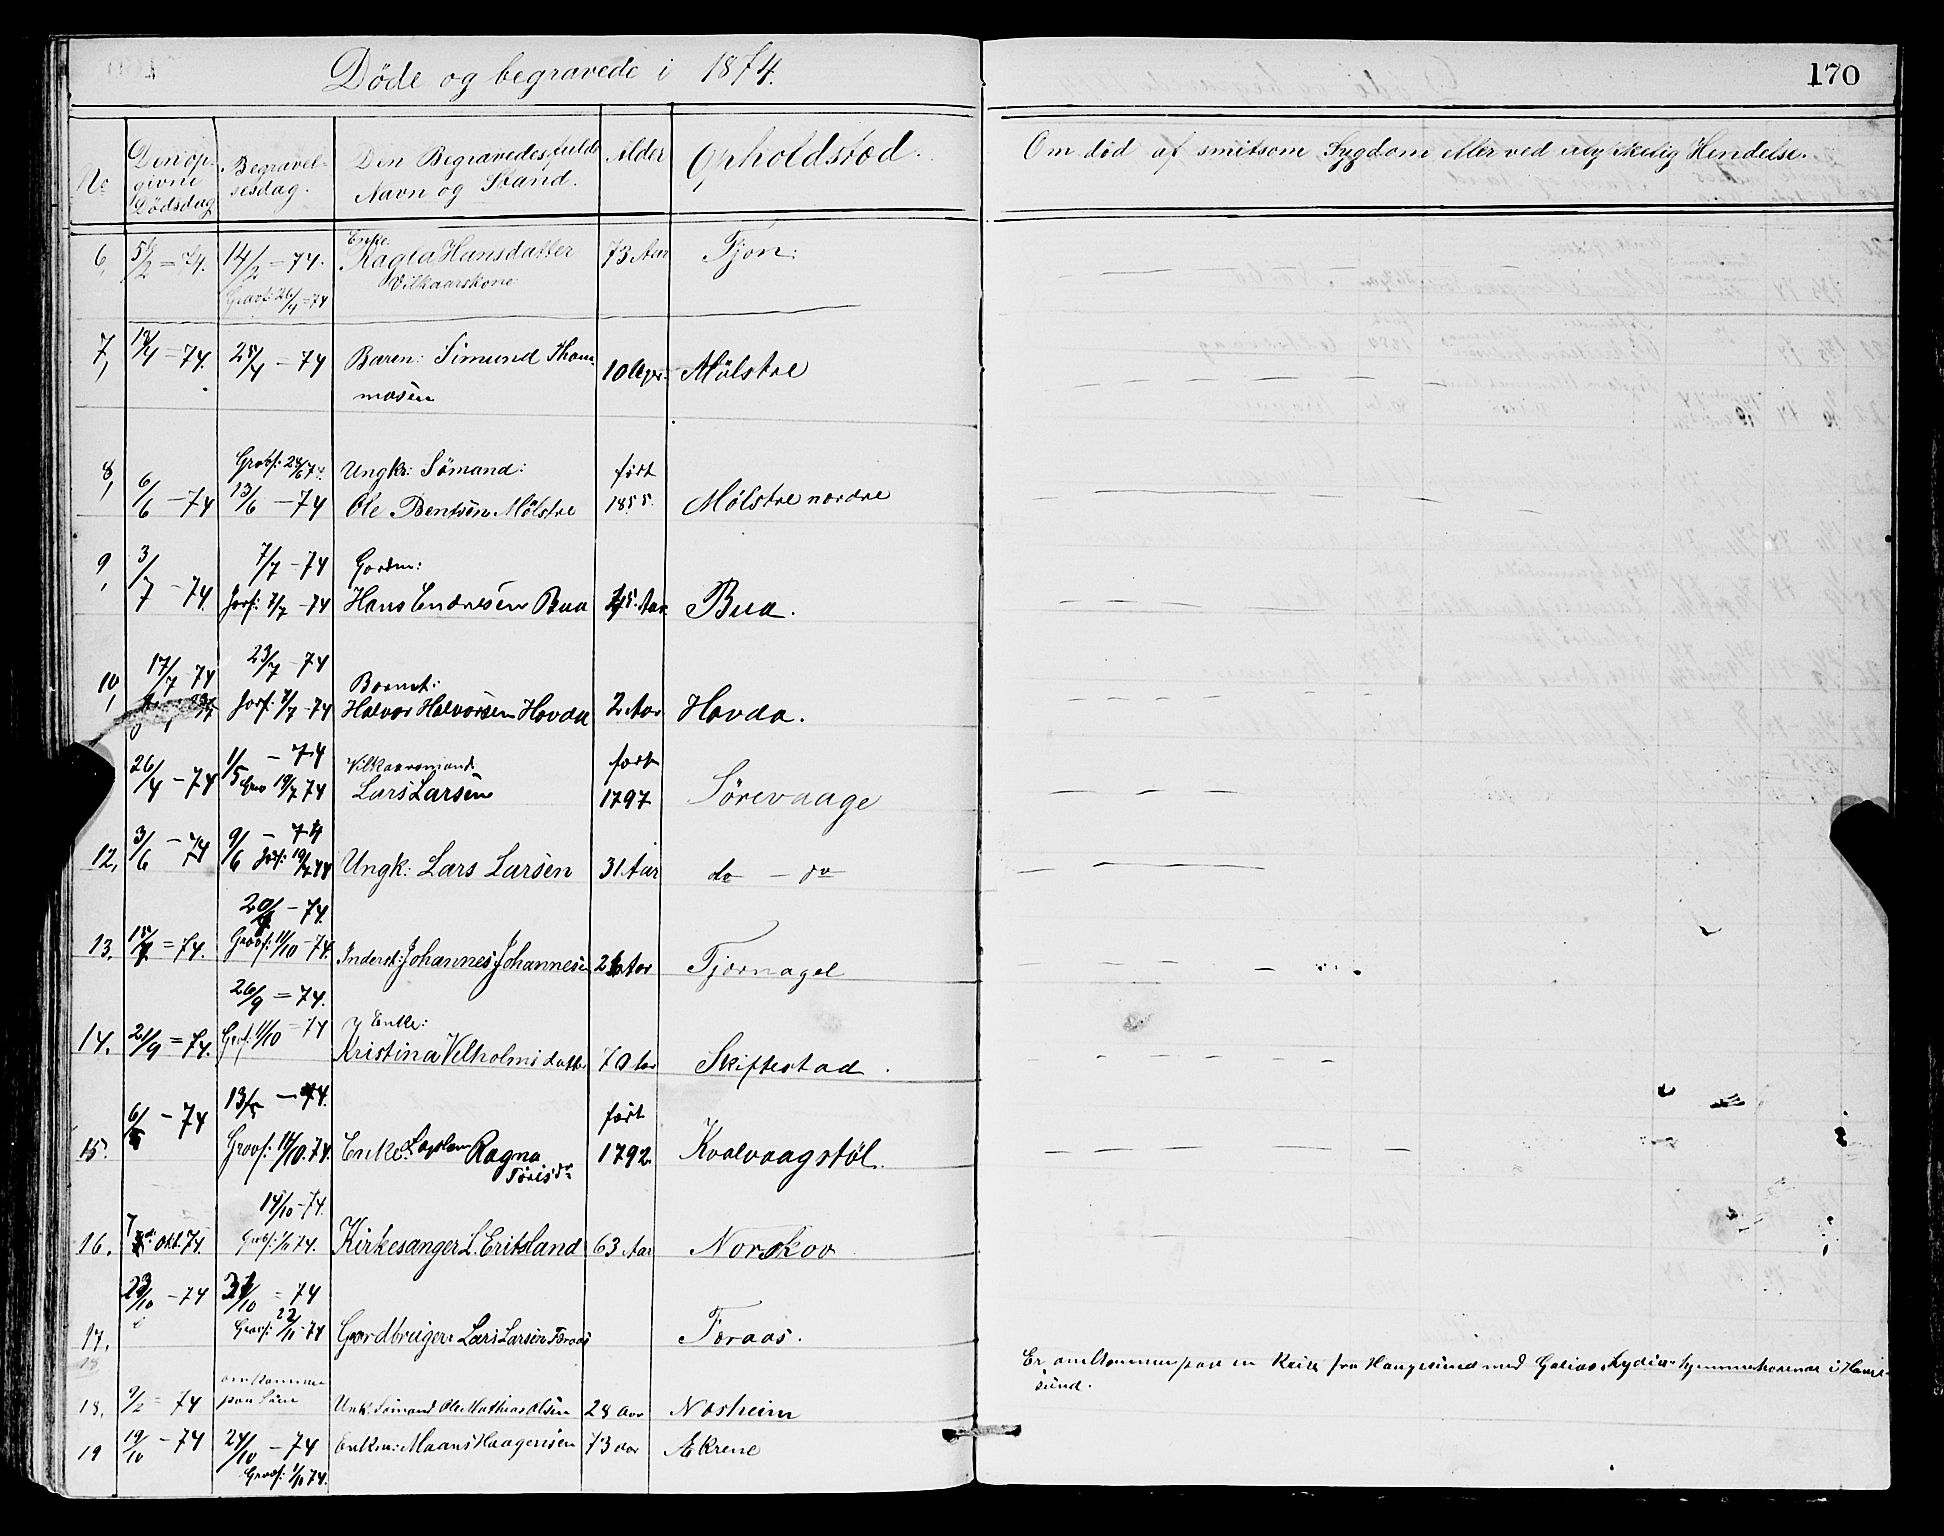 Døde og begravede i 1874.
170
No
Den op-
givne
Dødsdag
Begravel-
sesdag.
Den Begravedes fulde
Navn og Stand.
Alder
Opholdsted.
Om død af smitsom Sygdom eller ved ulykkelig Hendelse.
6, 5/2 = 74. 14/2 - 74. Enke: Ragla Hansdatter 73 Aar Tjon:
Gravf: 26/4 = 74 Vilkaarskone
7, 19/4 = 74. 25/4 - 74 Baren: Simund Thom- 10 Uger: Mølstre
mosen
8, Gravf: 28/6 74 Ungkr: Sømand: født
6/6 - 74 13/6 - 74 Ole Bentsen Mølstre 1855. Mølstre nordre
9, 3/7 - 74. 7/7 - 74 Gordm:
Jorf: 7/7 - 74 Hans Endresen Bua 45 Aar Bua.
10, 17/7 74 23/7 - 74 Barnet:
Jorf: 7/7 - 74 Halvor Halvorsen Hovda 2 Aar Hovda.
26/4 - 74 1/5 - 74 Vilkaarsmand født
Grav 19/7 74 Lars Larsen 1797 Sørevaage
12, 3/6 - 74 9/6 - 74
Jorf: 19/7 74 Ungk: Lars Larsen 31 Aar do - do
20/9 - 74.
13, 15/9 = 74. Gravf: 11/10 - 74. Inderst: Johannes Johannesen 26 Aar Tjernagel
26/9 = 74.
14. 21/9 = 74. Gravf: 11/10 = 74 Enke:
Kristina Velholmsdatter 70 Aar Skiftestad
6/5 - 74 13/5 - 74. født
15. Gravf: 11/10. 74. Enke: Lægslem Ragna 1792. Kvalvaagstøl.
Torisd.
14/10 - 74.
16. 7de okt. 74. Gravf: 1/11 74. Kirkesanger L. Eritsland 63 Aar Norskov
23/10 - 74 31/10 = 74
17. Gravf: 22/11 - 74 Gordbruger Lars LarsenFøraas Føraas.
18
18. 9/2 = 74 omkommen
paa Søen Unk. Sømand Ole Mathias Olsen 28 Aar Nosheim
Er omkommen paa en Reise fra Haugesund med Galias "Lydia" hjemmehørende i Hauge-
sund.
19 19/10 - 74 24/10 - 74 Enkem: Maans Haagensen 73 aar Ækrene
Gravf: 1/11 74.